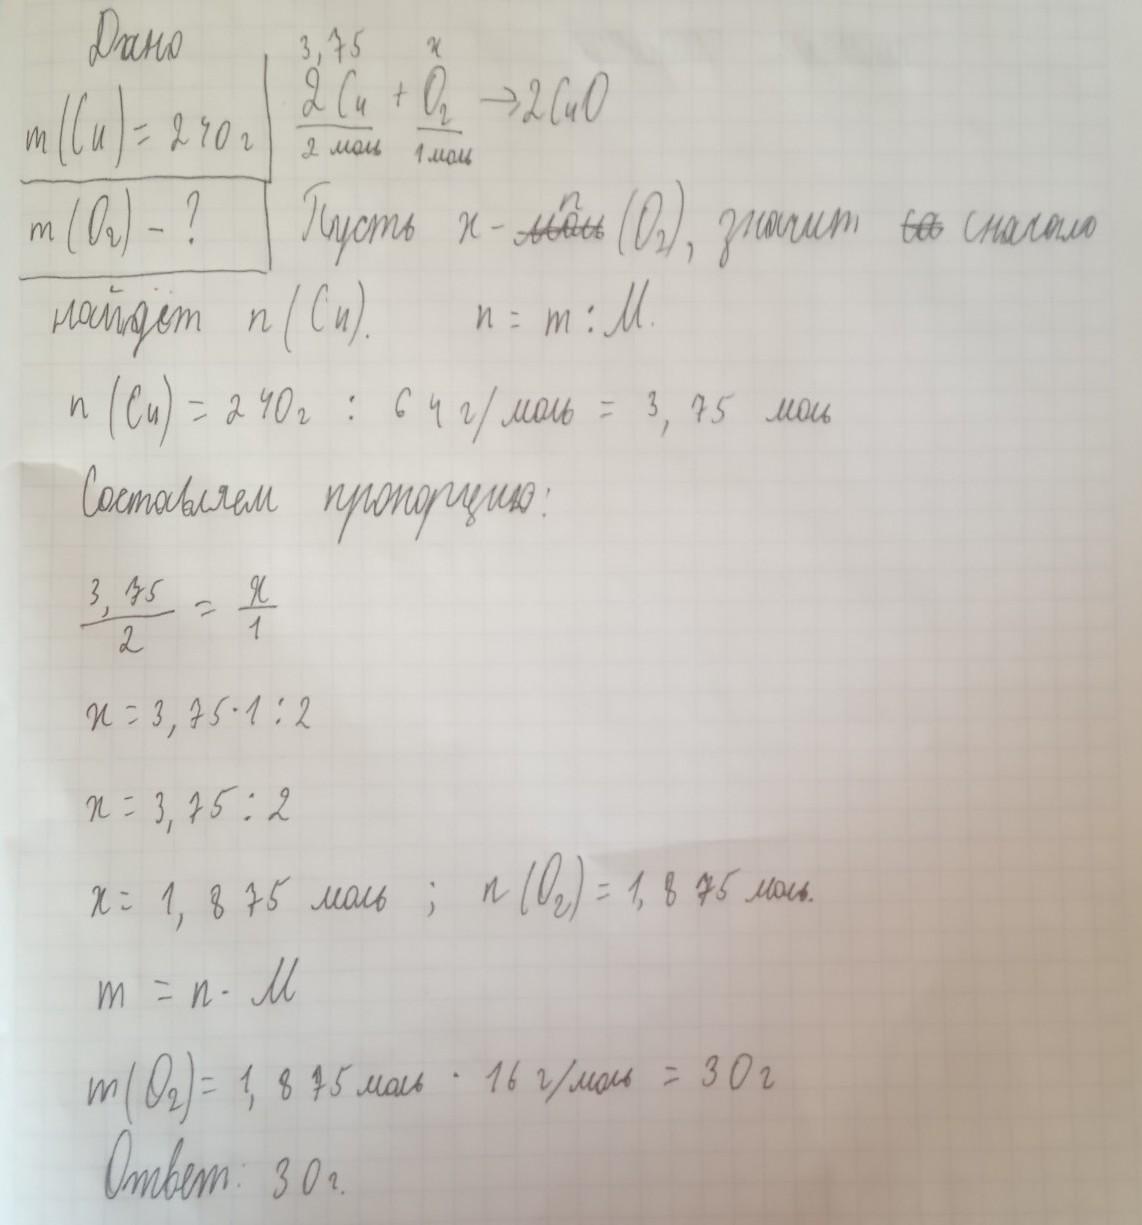 Дано
m(Cu) = 240г
m(O₂) - ?
3,75 x
2Cu + O₂ → 2CuO
2 моль 1 моль
Пусть x - n (O₂), значит сначала
найдём n(Cu). n = m : M.
n(Cu) = 240г : 64г/моль = 3,75 моль
Составляем пропорцию:
3,75/2 = x/1
x = 3,75·1:2
x = 3,75:2
x = 1,875 моль ; n(O₂) = 1,875 моль.
m = n · M
m(O₂) = 1,875 моль · 16 г/моль = 30г
Ответ: 30г.